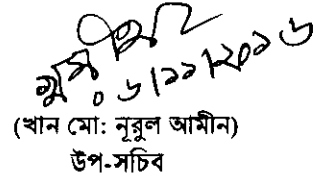 ০৬/১১/২০১৬
(খান মো: নূরুল আমীন)
উপ-সচিব